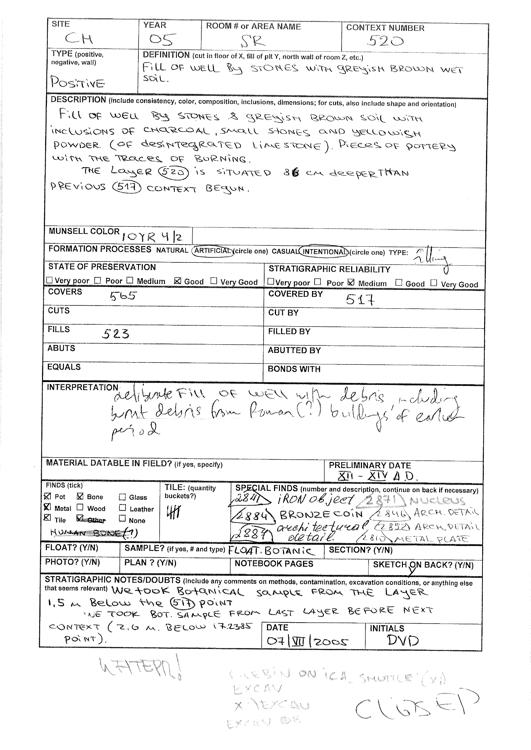 SITE YEAR ROOM # or AREA NAME CONTEXT NUMBER
CH 05 SR 520
TYPE (positive, negative, wall) DEFINITION (cut in floor of X, fill of pit Y, north wall of room Z, etc.)
Positive FILL OF WELL BY STONES WITH GREYISH BROWN WET
SOIL.
DESCRIPTION (Include consistency, color, composition, inclusions, dimensions; for cuts, also include shape and orientation)
FILL OF WELL BY STONES & GREYISH BROWN SOIL WITH
INCLUSIONS OF CHARCOAL, SMALL STONES AND YELLOWISH
POWDER (OF DESINTEGRATED LIMESTONE). PIECES OF POTTERY
WITH THE TRACES OF BURNING.
THE LAYER 520 IS SITUATED 86 CM DEEPER THAN
PREVIOUS 517 CONTEXT BEGUN.
MUNSELL COLOR 10YR 4/2
FORMATION PROCESSES NATURAL ARTIFICIAL (circle one) CASUAL INTENTIONAL (circle one) TYPE: filling
STATE OF PRESERVATION STRATIGRAPHIC RELIABILITY
☐ Very poor ☐ Poor ☐ Medium ☒ Good ☐ Very Good ☐ Very poor ☐ Poor ☒ Medium ☐ Good ☐ Very Good
COVERS 565 COVERED BY 517
CUTS CUT BY
FILLS 523 FILLED BY
ABUTS ABUTTED BY
EQUALS BONDS WITH
INTERPRETATION
deliberate FILL OF WELL with debris including
burnt debris from Roman (?) buildings of earlier
period
MATERIAL DATABLE IN FIELD? (if yes, specify) PRELIMINARY DATE
XII - XIV A.D.
FINDS (tick) TILE: (quantity buckets?) SPECIAL FINDS (number and description, continue on back if necessary)
☒ Pot ☒ Bone ☐ Glass 2841 IRON Object 2871 NUCLEUS
☒ Metal ☐ Wood ☐ Leather 2884 BRONZE COIN ARCH. DETAIL
☒ Tile ☒ Other ☐ None 2887 architectural detail 2852 ARCH. DETAIL
HUMAN BONE (?) METAL PLATE
FLOAT? (Y/N) SAMPLE? (if yes, # and type) FLOAT. BOTANIC SECTION? (Y/N)
PHOTO? (Y/N) PLAN ? (Y/N) NOTEBOOK PAGES SKETCH ON BACK? (Y/N)
STRATIGRAPHIC NOTES/DOUBTS (Include any comments on methods, contamination, excavation conditions, or anything else
that seems relevant) WE TOOK BOTANICAL SAMPLE FROM THE LAYER
1,5 m BELOW THE 517 POINT
WE TOOK BOT. SAMPLE FROM LAST LAYER BEFORE NEXT
CONTEXT (2.6 M. BELOW 17.2385 POINT).
DATE INITIALS
07/VII/2005 DVD
EXCAV
EXCAV
CLOSED